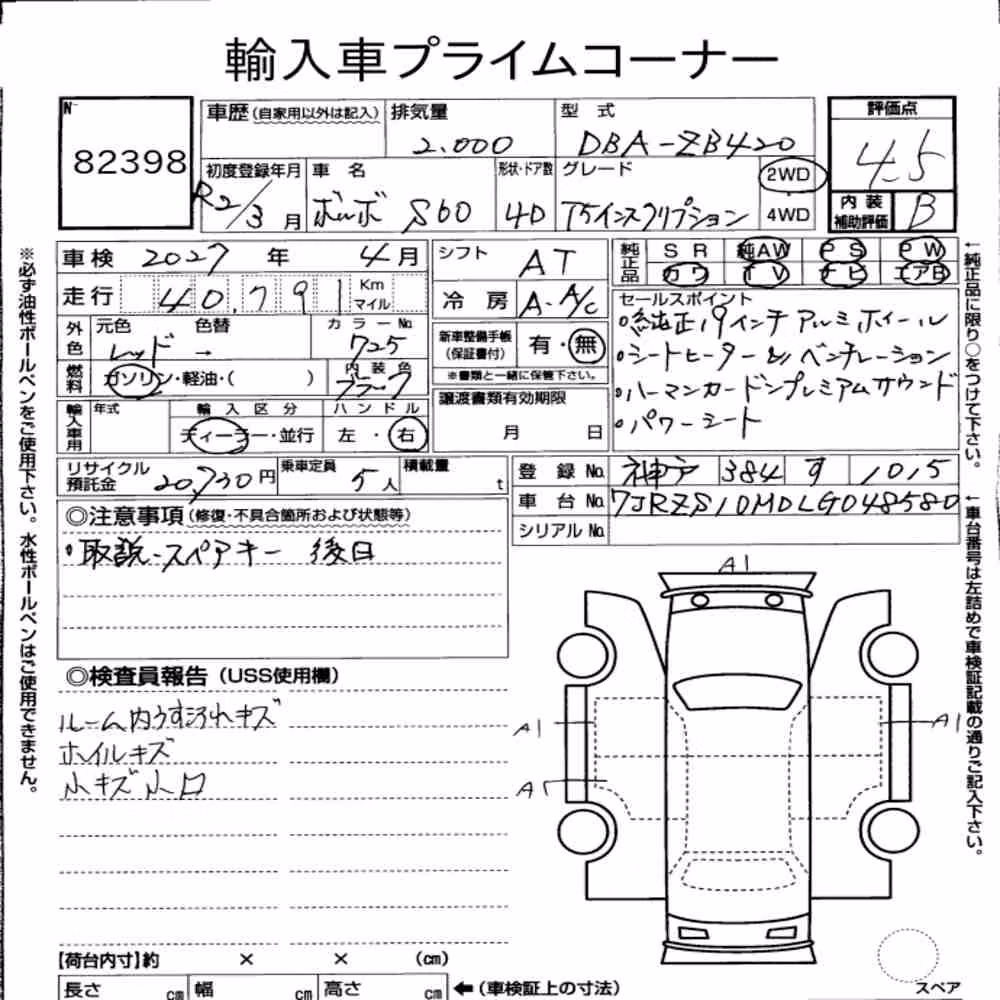 輸入車プライムコーナー
No 82398
車歴 (自家用以外は記入) 排気量 2.000 型式 DBA-ZB420 評価点 4.5
初度登録年月 R2/3月 車名 ボルボ S60 形状・ドア数 4D グレード T5インスクリプション 2WD 4WD 内装補助評価 B
車検 2027年 4月 シフト AT 純正品 SR 純AW PS PW
走行 40,791 Km マイル 冷房 A-A/C カワ TV ナビ エアB
外色 元色 レッド 色替 → カラーNo. 725
新車整備手帳 (保証書付) 有・無
※書類と一緒に保管下さい。
燃料 ガソリン・軽油・( ) 内装色 ブラック
譲渡書類有効期限 月 日
輸入車用 年式 輸入区分 ディーラー・並行 ハンドル 左・右
セールスポイント
・純正19インチアルミホイール
・シートヒーター&ベンチレーション
・ハーマンカードンプレミアムサウンド
・パワーシート
リサイクル預託金 20,730円 乗車定員 5人 積載量 t
登録No. 神戸 384 す 1015
車台No. 7JRZS10MDLG048580
シリアルNo.
◎注意事項 (修復・不具合箇所および状態等)
・取説・スペアキー 後日
◎検査員報告 (USS使用欄)
ルーム内うすごれキズ
ホイルキズ
小キズ小凹
A1
A1
A1
A1
【荷台内寸】約 × × (cm)
長さ cm 幅 cm 高さ cm ←(車検証上の寸法)
スペア
※必ず油性ボールペンをご使用下さい。水性ボールペンはご使用できません。
←純正品に限り○をつけて下さい。
←車台番号は左詰めで車検証記載の通りご記入下さい。